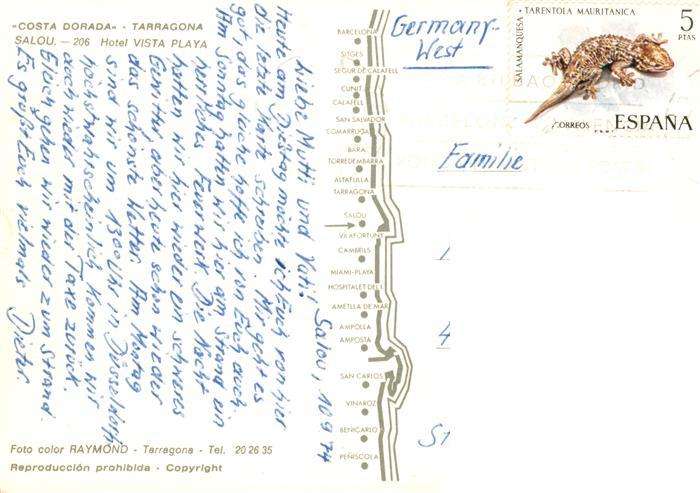 «COSTA DORADA» - TARRAGONA
SALOU. — 206 Hotel VISTA PLAYA
Salou, 10.9.74
Liebe Mutti und Vati!
Heute am Dienstag möchte ich Euch von hier
die letzte Karte schreiben. Mir geht es
gut das gleiche hoffe ich von Euch auch.
Am Sonntag hatten wir hier am Strand ein
herrliches Feuerwerk. Die Nacht
hatten wir hier wieder ein schweres
Gewitter aber heute schon wieder
das schönste Wetter. Am Montag
sind wir um 1300 Uhr in Düsseldorf
höchstwahrscheinlich kommen wir
auch wieder mit der Taxe zurück.
Gleich gehen wir wieder zum Strand.
Es grüßt Euch vielmals Dieter.
Foto color RAYMOND - Tarragona - Tel. 20 26 35
Reproducción prohibida - Copyright
BARCELONA
SITGES
SEGUR DE CALAFELL
CUNIT
CALAFELL
SAN SALVADOR
COMARRUGA
BARA
TORREDEMBARRA
ALTAFULLA
TARRAGONA
SALOU
VILAFORTUNY
CAMBRILS
MIAMI-PLAYA
HOSPITALET DEL I.
AMETLLA DE MAR
AMPOLLA
AMPOSTA
SAN CARLOS
VINAROZ
BENICARLO
PEÑISCOLA
Germany-
West
SALAMANQUESA - TARENTOLA MAURITANICA
5
PTAS
CORREOS
ESPAÑA
Familie
4